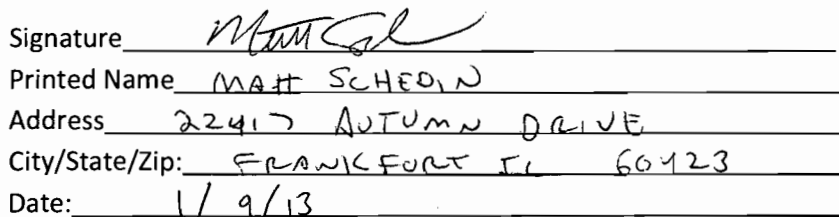 Signature Matt
Printed Name MATT SCHEDIN
Address 22417 AUTUMN DRIVE
City/State/Zip: FRANKFORT IL 60423
Date: 1/9/13